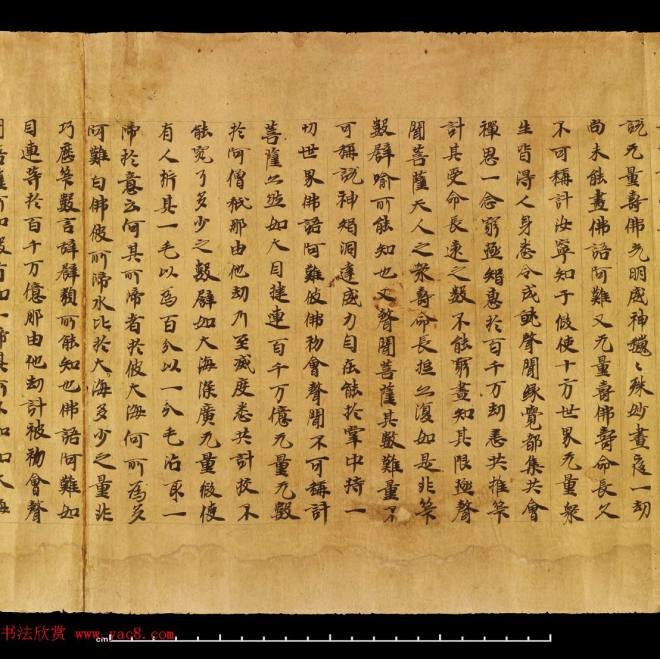 說无量壽佛光明威神巍〻殊妙晝夜一劫
尚未能盡佛語阿難又无量壽佛壽命長久
不可稱計汝寧知乎假使十方世界无量衆
生皆得人身悉令成就聲聞緣覺都集共會
禪思一合窮極智惠於百千万劫悉共推筭
計其受命長遠之數不能窮盡知其限極聲
聞菩薩天人之衆壽命長短亦復如是非筭
數辟喻所能知也又聲聞菩薩其數難量不
可稱說神智洞達威力自在能於掌中持一
切世界佛語阿難彼佛初會聲聞不可稱計
菩薩亦然如大目揵連百千万億无量无數
於阿僧祇那由他劫乃至滅度悉共計挍不
能究了多少之數辟如大海深廣无量假使
有人析其一毛以爲百分以一分毛沾取一
渧於意云何其所渧者於彼大海何所爲多
阿難白佛彼所渧水比於大海多少之量非
巧歷筭數言辝辟類所能知也佛語阿難如
目連等於百千万億那由他劫計彼初會聲
书法欣赏 www.yac8.com
cm